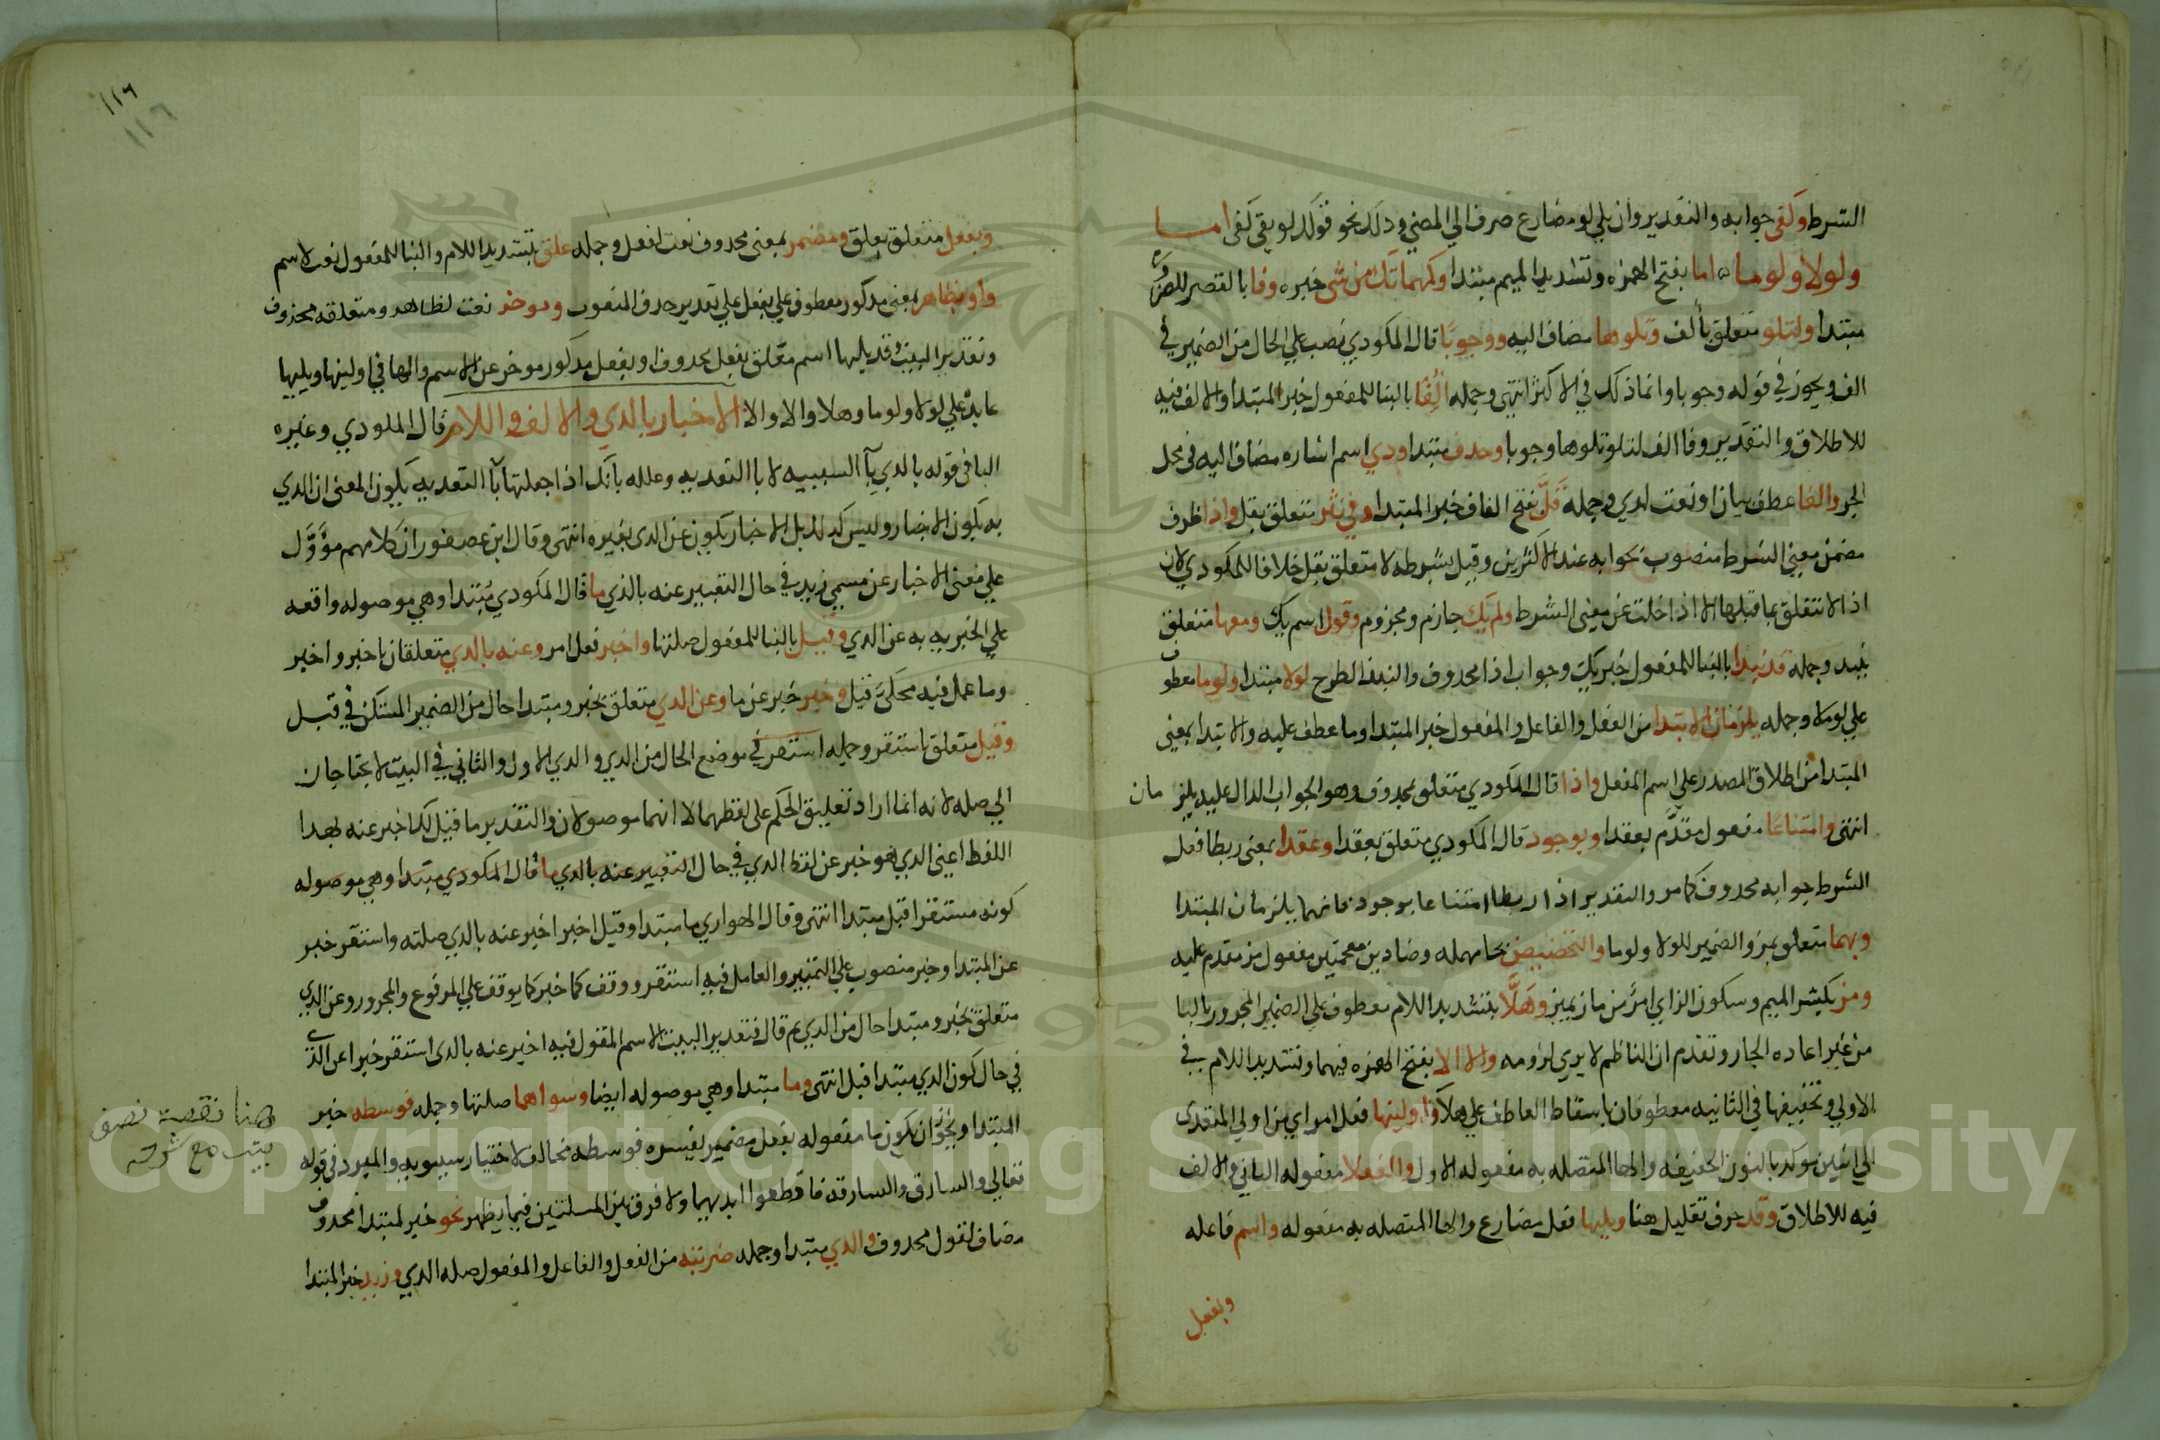 الشرط وكفي جوابه والتقدير وان يلي لو مضارع صرف الي المضي وذلك نحو قولك لو يفي كفي اما
ولولا ولوما اما بفتح الهمزه وتشديد الميم مبتدا وكمهما تك من شي خبره وفا بالقصر للضروره
مبتدا ولتلو متعلق بألف وتلوها مضاف اليه ووجوبا قال المكودي نصب علي الحال من الضمير في
الف ويجوز في قوله وجوبا وانما ذلك في الاكثر انتهي وجمله أُلِفا بالبنا للمفعول خبر المبتدا والالف فيه
للاطلاق والتقدير وفا الف لتلو تلوها وجوبا وحذف مبتدا وذي اسم اشاره مضاف اليه في محل
الجر والفا عطف بيان او نعت لذي وجمله قَلَّ بفتح القاف خبر المبتدا وفي نثر متعلق بقل واذا ظرف
مضمن معني الشرط منصوب بجوابه عند الاكثرين وقيل بشرطه لا متعلق بقل خلافا للمكودي لان
اذا لا تتعلق بما قبلها الا اذا خلت عن معني الشرط ولم يَك جازم ومجزوم وقول اسم يك ومعها متعلق
بنبذ وجمله قد نبذا بالبنا للمفعول خبر يك وجواب اذا محذوف والنبذ الطرح لولا مبتدا ولوما معطوف
علي لولا وجمله يلزمان الابتدا من الفعل والفاعل والمفعول خبر المبتدا وما عطف عليه والابتدا بمعني
المبتدا من اطلاق المصدر علي اسم المفعل واذا قال المكودي متعلق بمحذوف وهو الجواب الدال عليه يلزمان
انتهي وامتناعًا مفعول مقدَّم بعقدا وبوجود قال المكودي متعلق بعقدا وعقدا بمعني ربطا فعل
الشرط جوابه محذوف كما مر والتقدير اذا ربطا امتناعا بوجود فانهما يلزمان المبتدا
وبهما متعلق بمز والضمير للولا ولوما والتحضيض بحا مهمله وضادين معجمتين مفعول مز مقدم عليه
ومز بكسر الميم وسكون الزاي امرٌ من ماز يميز وهَلَّا بتشديد اللام معطوف علي الضمير المجرور بالبا
من غير اعاده الجار وتقدم ان الناظم لا يري لزومه والا الا بفتح الهمزه فيهما وتشديد اللام في
الاولي وتخفيفها في الثانيه معطوفان باسقاط العاطف علي هلا واولينها فعل امر اي من اولي المتعدي
الي اثنين موكد بالنون الخفيفه والها المتصله به مفعوله الاول والفعلا مفعوله الثاني والالف
فيه للاطلاق وقد حرف تقليل هنا ويليها فعل مضارع والها المتصله به مفعوله واسم فاعله
وبفعل
١١٦
١١٦
وبفعل متعلق بعلق ومضمر بمعني محذوف نعت لفعل وجمله علق بتشديد اللام والبنا للمفعول نعت لاسم
وأو بظاهر بمعني مذكور معطوف علي بفعل علي تقدير حذف المنعوت وموخر نعت لظاهر ومتعلقه محذوف
وتقدير البيت وقد يليها اسم متعلق بفعل محذوف او بفعل مذكور موخر عن الاسم والها في اولينها ويليها
عايد علي لولا ولوما وهلا والا والا الاخبار بالذي والالف واللام قال المكودي وغيره
البا في قوله بالذي با السببيه لا با التعديه وعلله بانك اذا جعلتها با التعديه يكون المعني ان الذي
به يكون الاخبار وليس كذلك بل الاخبار يكون عن الذي بغيره انتهي وقال ابن عصفور ان كلامهم مؤوّل
علي معني الاخبار عن مسمي زيد في حال التعبير عنه بالذي ما قال المكودي مُبتدا وهي موصوله واقعه
علي المخبر به عن الذي وقيل بالبنا للمفعول صلتها واخبر فعل امر وعنه بالذي متعلقان باخبر واخبر
وما عمل فيه محكيّ قيل وخبر خبر عن ما وعن الذي متعلق بخبر ومبتدا حال من الضمير المستكن في قبل
وقبل متعلق باستقر وجمله استقر في موضع الحال من الذي والذي الاول والثاني في البيت لا يحتاجان
الي صله لانه انما اراد تعليق الحكم علي لفظهما لا انهما موصولان والتقدير ما قيل لك اخبر عنه بهذا
اللفظ اعني الذي هو خبر عن لفظ الذي في حال التعبير عنه بالذي ما قال المكودي مبتدا وهي موصوله
كونه مستقرا قبل مبتدا انتهي وقال الهواري ما مبتدا وقيل اخبر اخبر عنه بالذي صلته واستقر خبر
عن المبتدا وخبر منصوب علي التمييز والعامل فيه استقر ووقف كما خبر كما يوقف علي المرفوع والمجرور وعن الذي
متعلق بخبر ومبتدا حال من الذي ثم قال فتقدير البيت الاسم المقول فيه اخبر عنه بالذي استقر خبرا عن الذي
في حال كون الذي مبتدا قبل انتهي وما مبتدا وهي موصوله ايضا وسواهما صلتها وجمله فوسطه خبر
المبتدا ويجوز ان يكون ما مفعوله بفعل مضمر يفسره فوسطه مخالف لاختيار سيبويه والمبرد في قوله
تعالي والسارق والسارقه فاقطعوا ايديهما ولا فرق بين المسلتين فيما يظهر نحو خبر لمبتدا محذوف
مضاف لقول محذوف والذي مبتدا وجمله ضربته من الفعل والفاعل والمفعول صله الذي وزيد خبر المبتدا
هنا نقصة نصف
بيت مع شرحه
Copyright © King Saud University